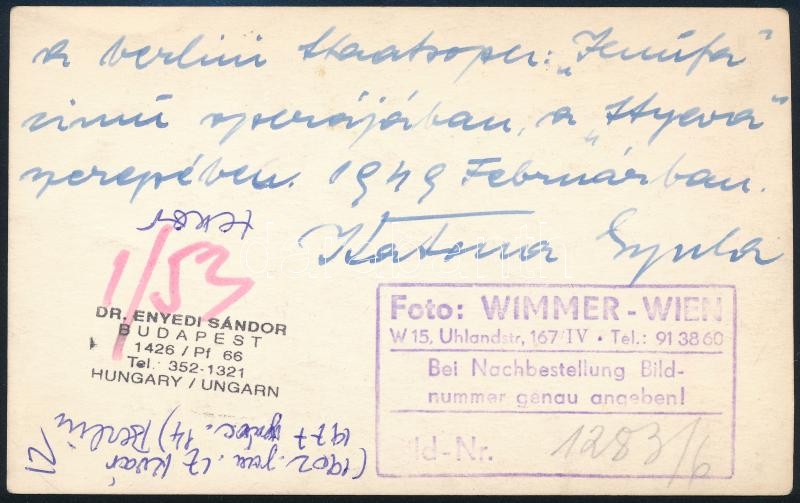 a berlini Staatsoper: "Jenúfa"
cimű operájában, a "Styeva"
szerepében. 1949 Februárban.
Katona Gyula
tenor
1/53
DR. ENYEDI SÁNDOR
BUDAPEST
1426 / Pf 66
Tel.: 352-1321
HUNGARY / UNGARN
Foto: WIMMER - WIEN
W 15, Uhlandstr, 167/IV • Tel.: 91 38 60
Bei Nachbestellung Bild-
nummer genau angeben!
Bild-Nr. 1283/6
(1902. jan. 17 Kvár
1977 . 14) Berlin
12